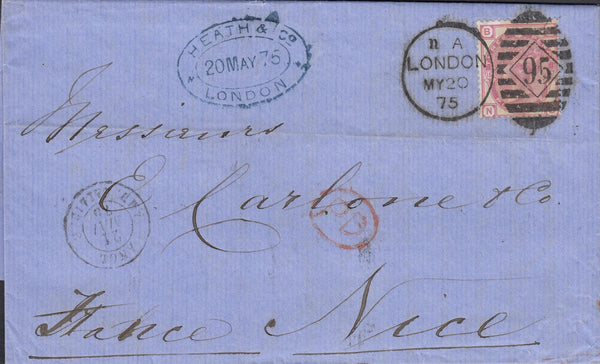 HEATH & Co
20 MAY 75
LONDON
A
LONDON
MY 20
75
95
B
N
Messieurs
E. Carlone & Co.
PD
France Nice